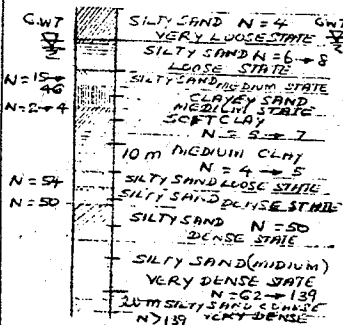 G.WT
SILTY SAND N=4 GWT
VERY LOOSE STATE
SILTY SAND N=6→8
LOOSE STATE
N=15→46
SILTY SAND MEDIUM STATE
CLAYEY SAND
N=2→4
MEDIUM STATE
SOFT CLAY
N=5→7
10m MEDIUM CLAY
N=4→5
N=54
SILTY SAND LOOSE STATE
N=50
SILTY SAND DENSE STATE
SILTY SAND N=50
DENSE STATE
SILTY SAND (MIDIUM)
VERY DENSE STATE
N=62→139
20m SILTY SAND COARSE
N>139 VERY DENSE